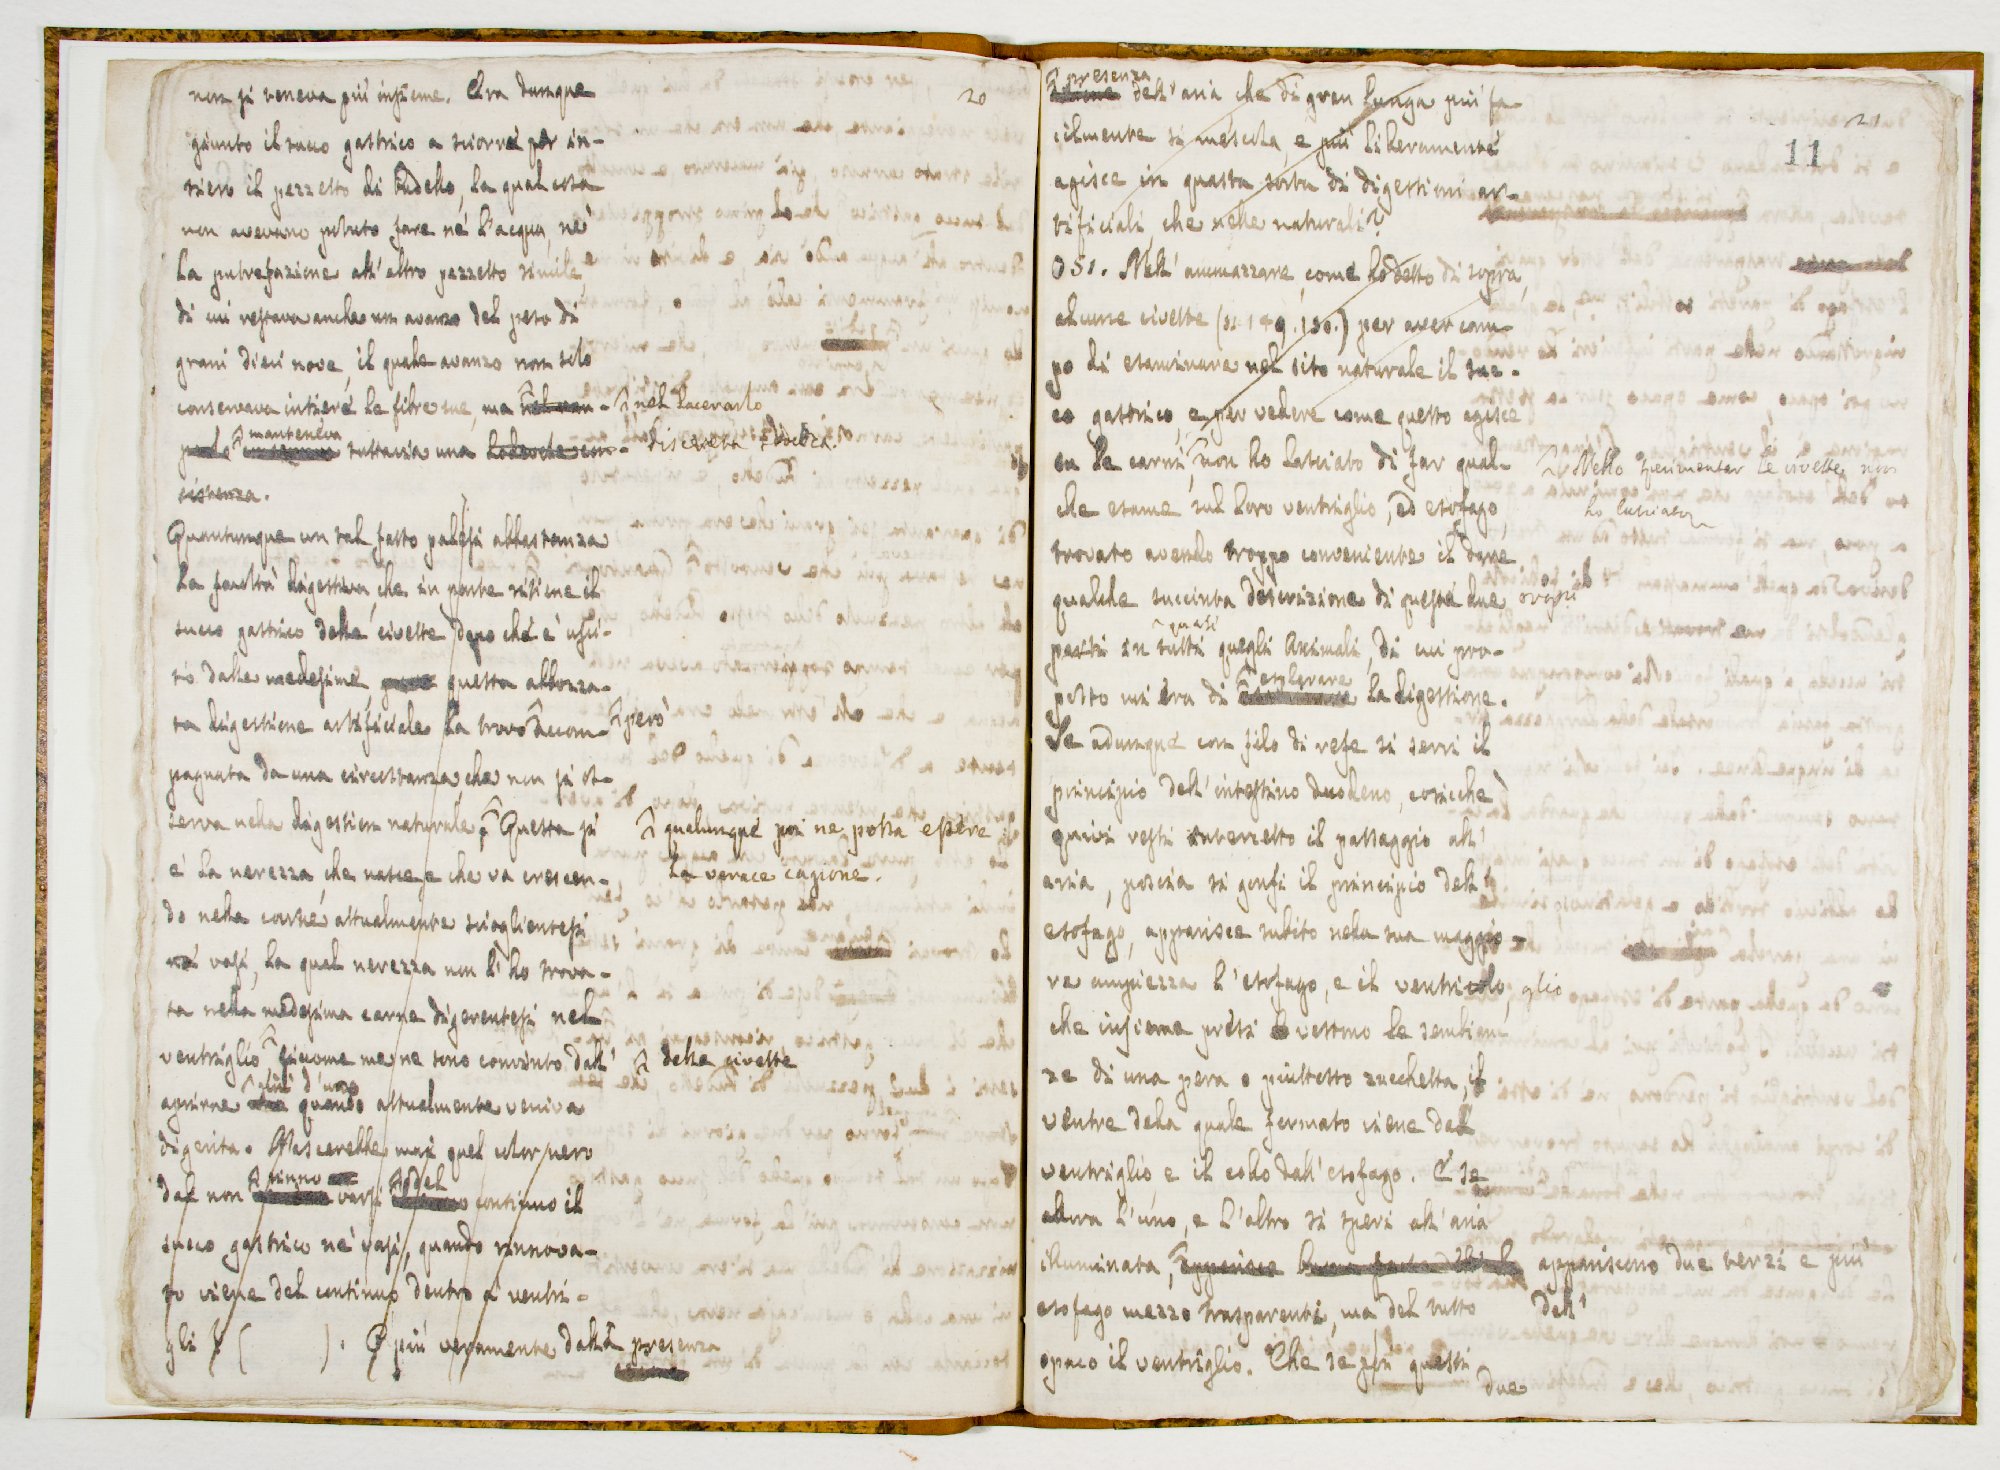 20
non si teneva più insieme. Era dunque
giunto il succo gastrico a sciorre per in-
tiero il pezzetto di budello, la qual cosa
non avevano potuto fare né l'acqua, né
la putrefazione all'altro pezzetto simile,
di cui restava anche un avanzo del peso di
grani dieci nove, il quale avanzo non solo
conservava intiere le fibre sue, ma
nel lacerarlo
manteneva tuttavia una
discreta
sistenza.
Quantunque un tal fatto palesi abbastanza
la facoltà digestiva, che in parte ritiene il
succo gastrico delle civette dopo che è usci-
to dalle medesime, questa abbozza-
ta digestione artificiale la trovo accom-
però
pagnata da una circostanza, che non si os-
serva nella digestion naturale, Questa si
qualunque poi ne possa essere
la verace cagione.
è la nerezza, che nasce, e che va crescen-
do nella carne attualmente scioglientesi
ne' vasi, la qual nerezza non l'ho trova-
ta nella medesima carne digerentesi nel
ventriglio siccome me ne sono convinto dall'
delle civette
più d'uno
aprirne quando attualmente veniva
digerita. Nascerebbe mai quel color nero
dal non varsi del continuo il
succo gastrico ne' vasi, quando rinnova-
to viene del continuo dentro a' ventri-
gli ( ). O più veramente dalla presenza
21
11
presenza
dell'aria che di gran lunga più fa-
cilmente si mescola, e più liberamente
agisce in questa sorta di digestioni ar-
tificiali, che nelle naturali?
051. Nell'ammazzare, come ho detto di sopra,
alcune civette (n. 149. 150.) per aver cam-
po di esaminare nel sito naturale il suc-
co gastrico, e per vedere come questo agisce
su le carni, non ho lasciato di far qual-
Nello sperimentar le civette non
ho lasciato
che esame sul loro ventriglio, ed esofago,
trovato avendo troppo conveniente il dare
qualche succinta descrizione di queste due
organi
quasi
parti in tutti quegli Animali, di cui pro-
esplorare
posto mi era di la digestione.
Se adunque con filo di refe si serri il
principio dell'intestino duodeno, cosicché
quivi resti intercetto il passaggio all'
aria, poscia si gonfi il principio dell'
esofago, apparisce subito nella sua maggio-
re ampiezza l'esofago, e il ventricolo, glio
che insieme presi vestono le sembian-
ze di una pera o piuttosto zucchetta, il
ventre della quale formato viene dal
ventriglio, e il collo dall'esofago. E se
allora l'uno, e l'altro si speri all'aria
illuminata, appariscono due terzi e più
esofago mezzo trasparenti, ma del tutto dell'
opaco il ventriglio. Che se questi
due